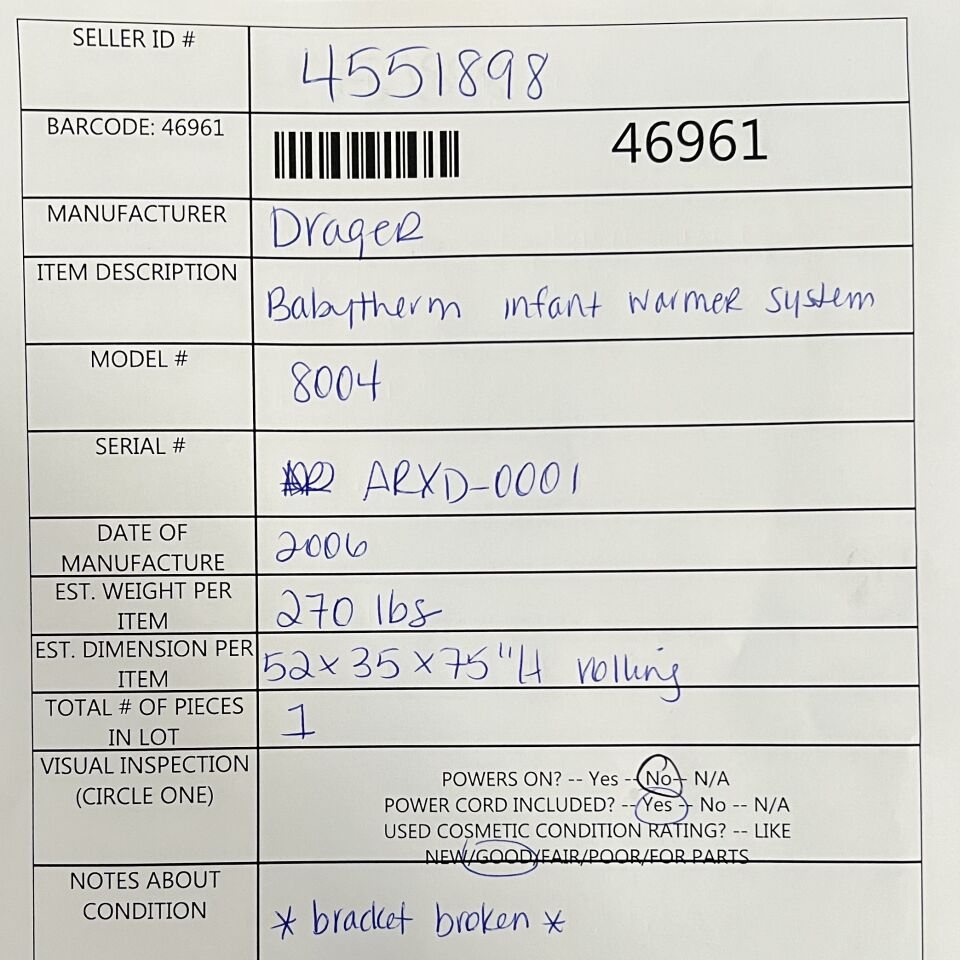 SELLER ID # 4551898
BARCODE: 46961 46961
MANUFACTURER Drager
ITEM DESCRIPTION Babytherm infant warmer system
MODEL # 8004
SERIAL # ARXD-0001
DATE OF
MANUFACTURE 2006
EST. WEIGHT PER
ITEM 270 lbs
EST. DIMENSION PER
ITEM 52 x 35 x 75"H rolling
TOTAL # OF PIECES
IN LOT 1
VISUAL INSPECTION
(CIRCLE ONE)
POWERS ON? -- Yes -- No -- N/A
POWER CORD INCLUDED? -- Yes -- No -- N/A
USED COSMETIC CONDITION RATING? -- LIKE
NEW/GOOD/FAIR/POOR/FOR PARTS
NOTES ABOUT
CONDITION * bracket broken *